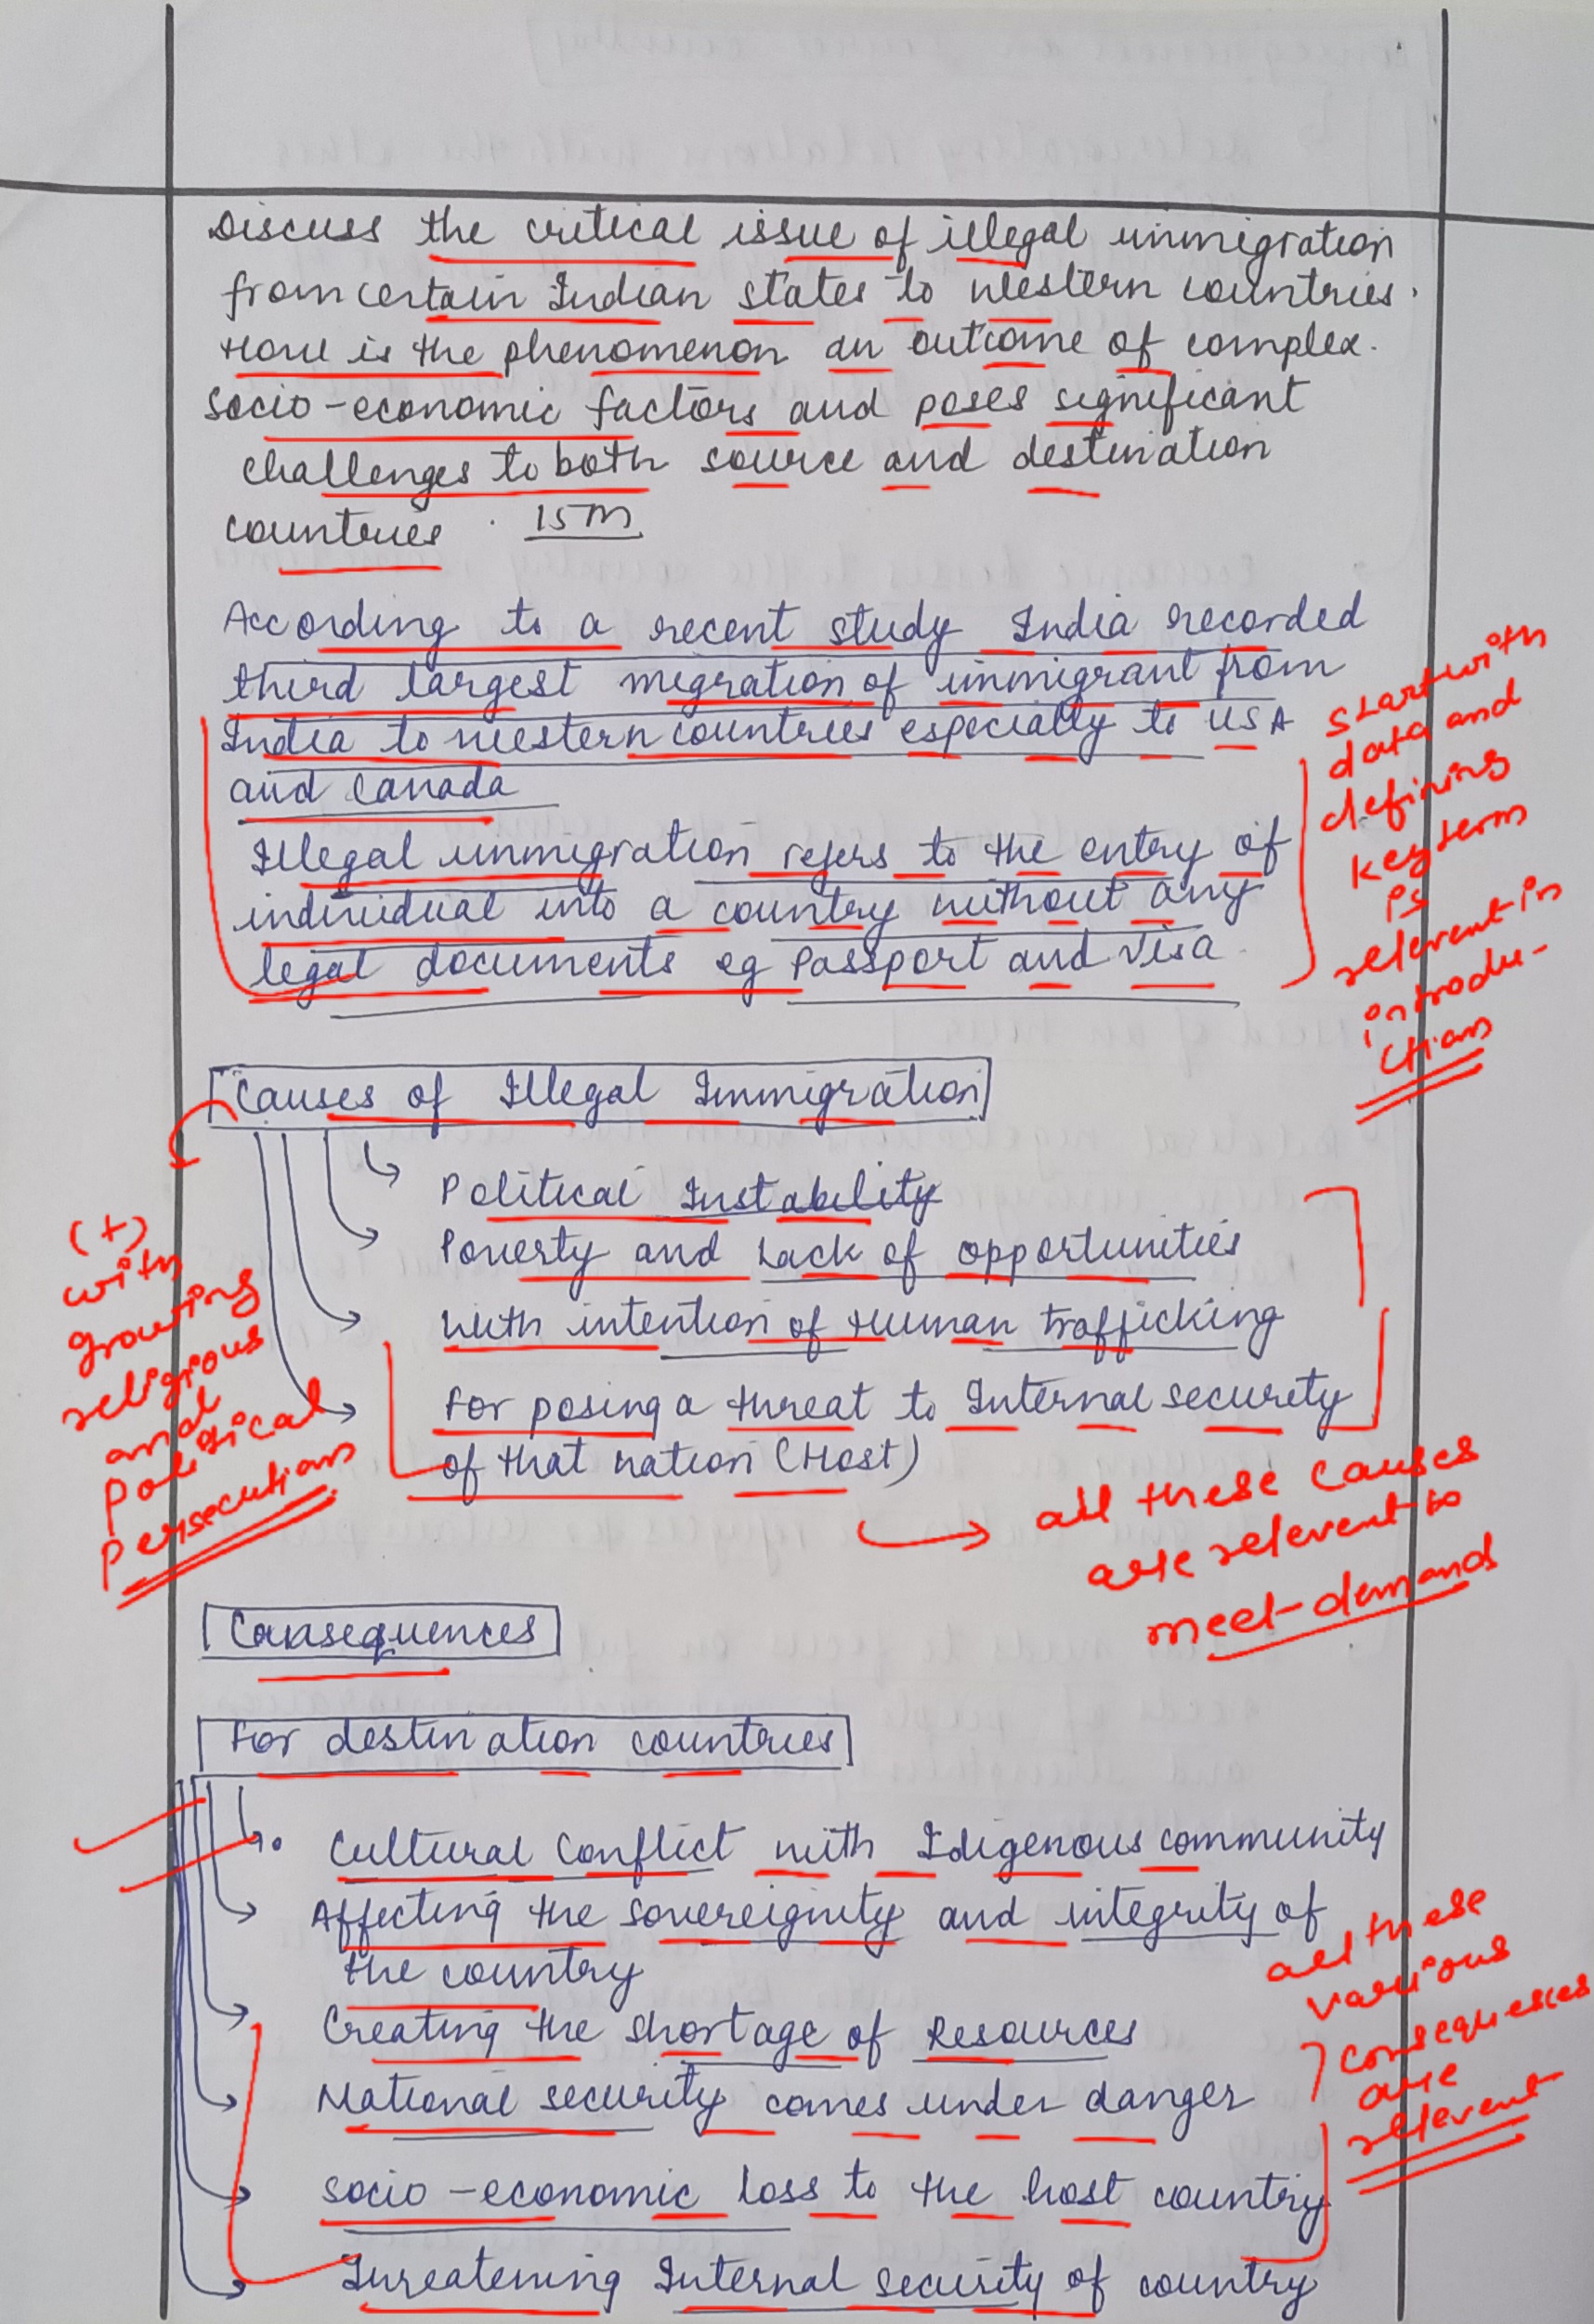 Discuss the critical issue of illegal immigration
from certain Indian states to western countries.
How is the phenomenon an outcome of complex
socio-economic factors and poses significant
challenges to both source and destination
countries. 15m
According to a recent study India recorded
third largest migration of immigrant from
India to western countries especially to USA
and Canada
Illegal immigration refers to the entry of
individual into a country without any
legal documents eg Passport and Visa.
start with
data and
defining
key term
is
relevent in
introdu-
ction
Causes of Illegal Immigration
Political Instability
Poverty and Lack of opportunities
With intention of Human trafficking
For posing a threat to Internal security
of that nation (Host)
(+)
with
growing
religious
and
political
persecution
all these causes
are relevent to
meet demand
Consequences
For destination countries
Cultural Conflict with Idigenous community
Affecting the sovereignity and integrity of
the country
Creating the shortage of Resources
National security comes under danger
socio-economic loss to the host country
Threatening Internal security of country
all these
various
consequesces
are
relevent